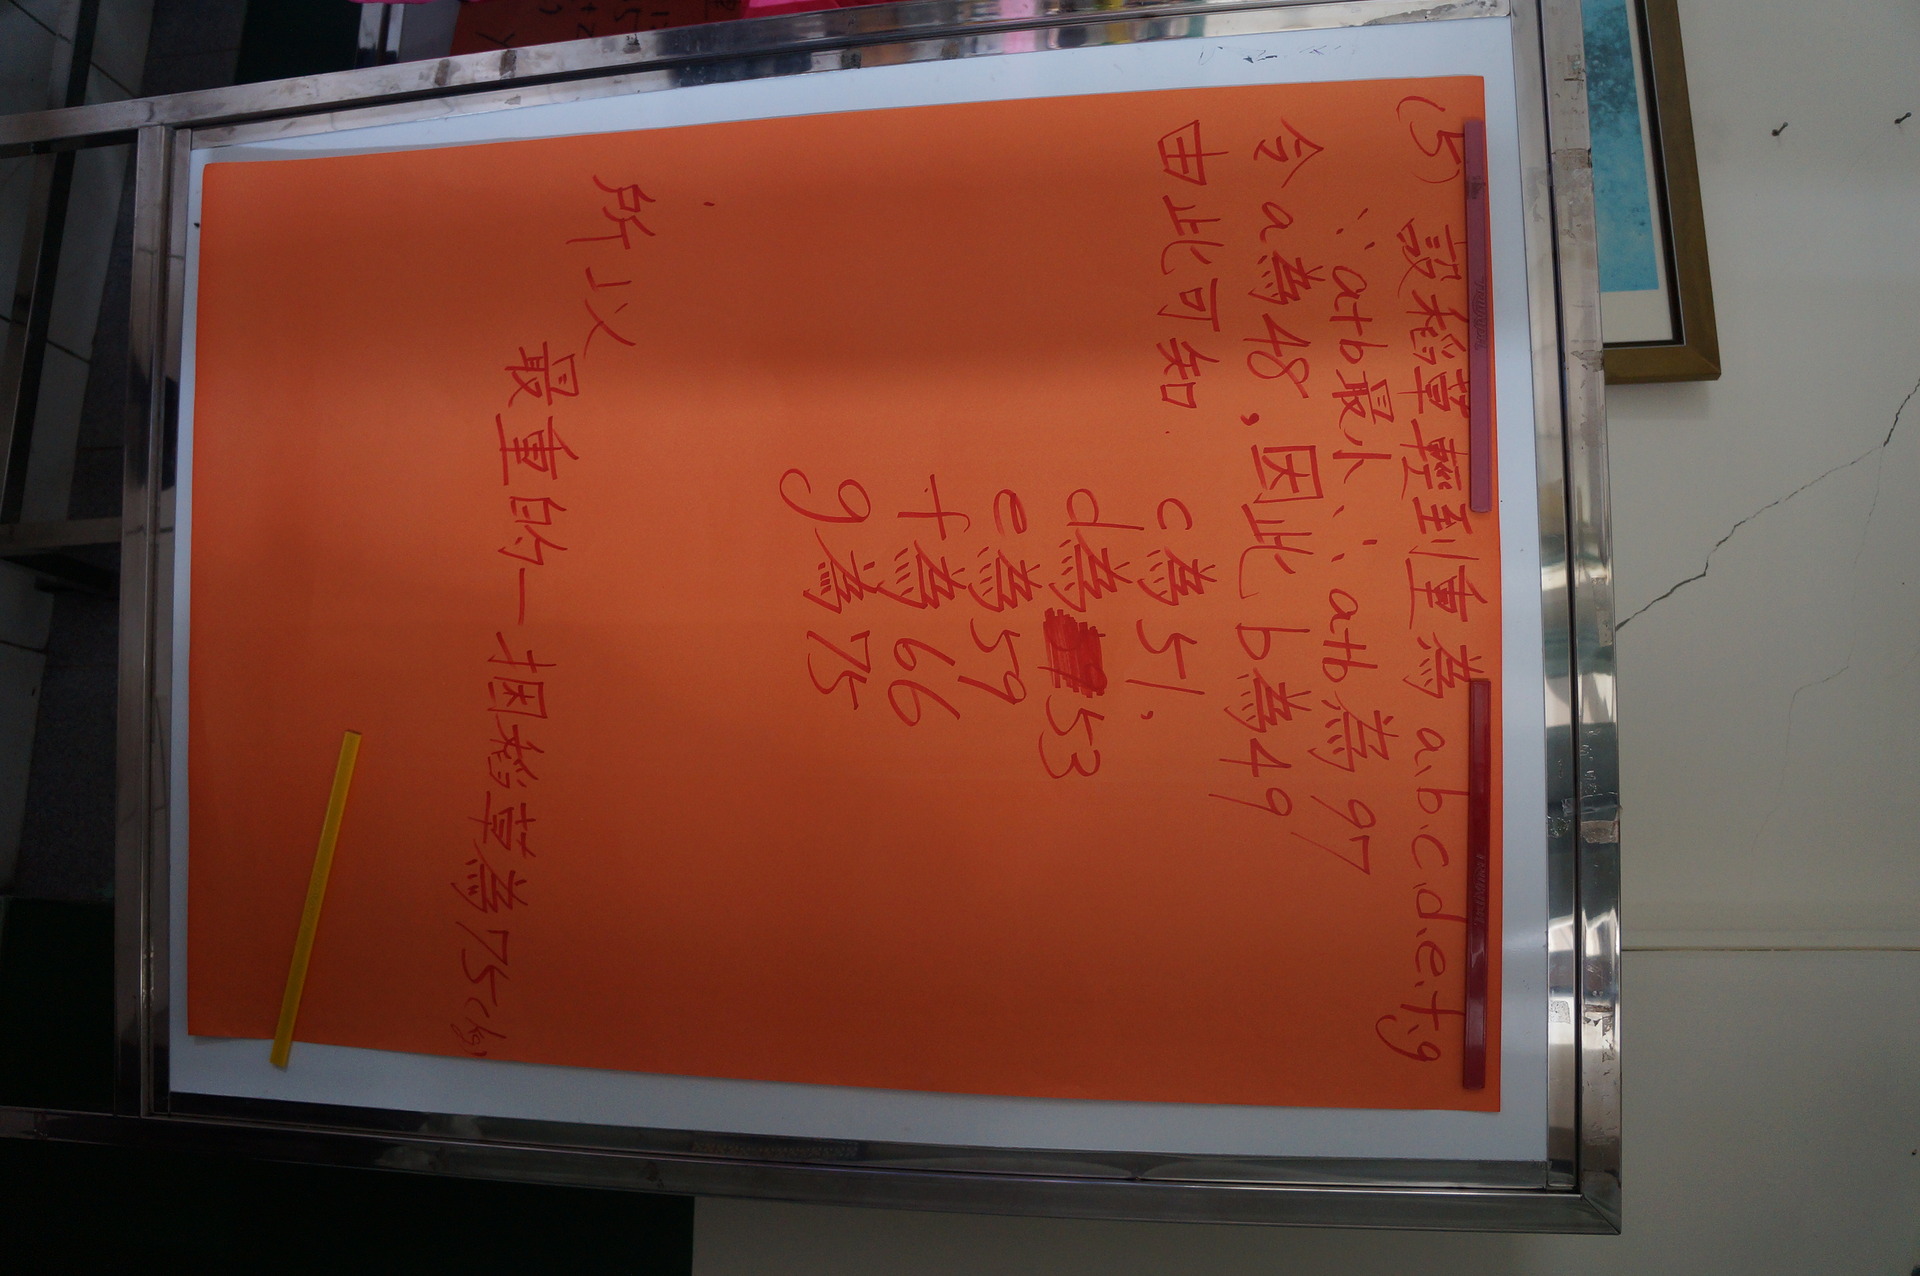 (5) 設稻草輕到重為 a、b、c、d、e、f、g
∵a+b最小、∴a+b為97
令a為48,因此 b為49
由此可知. c為51,
d為53
e為59
f為66
g為75
所以
最重的一捆稻草為75(kg)